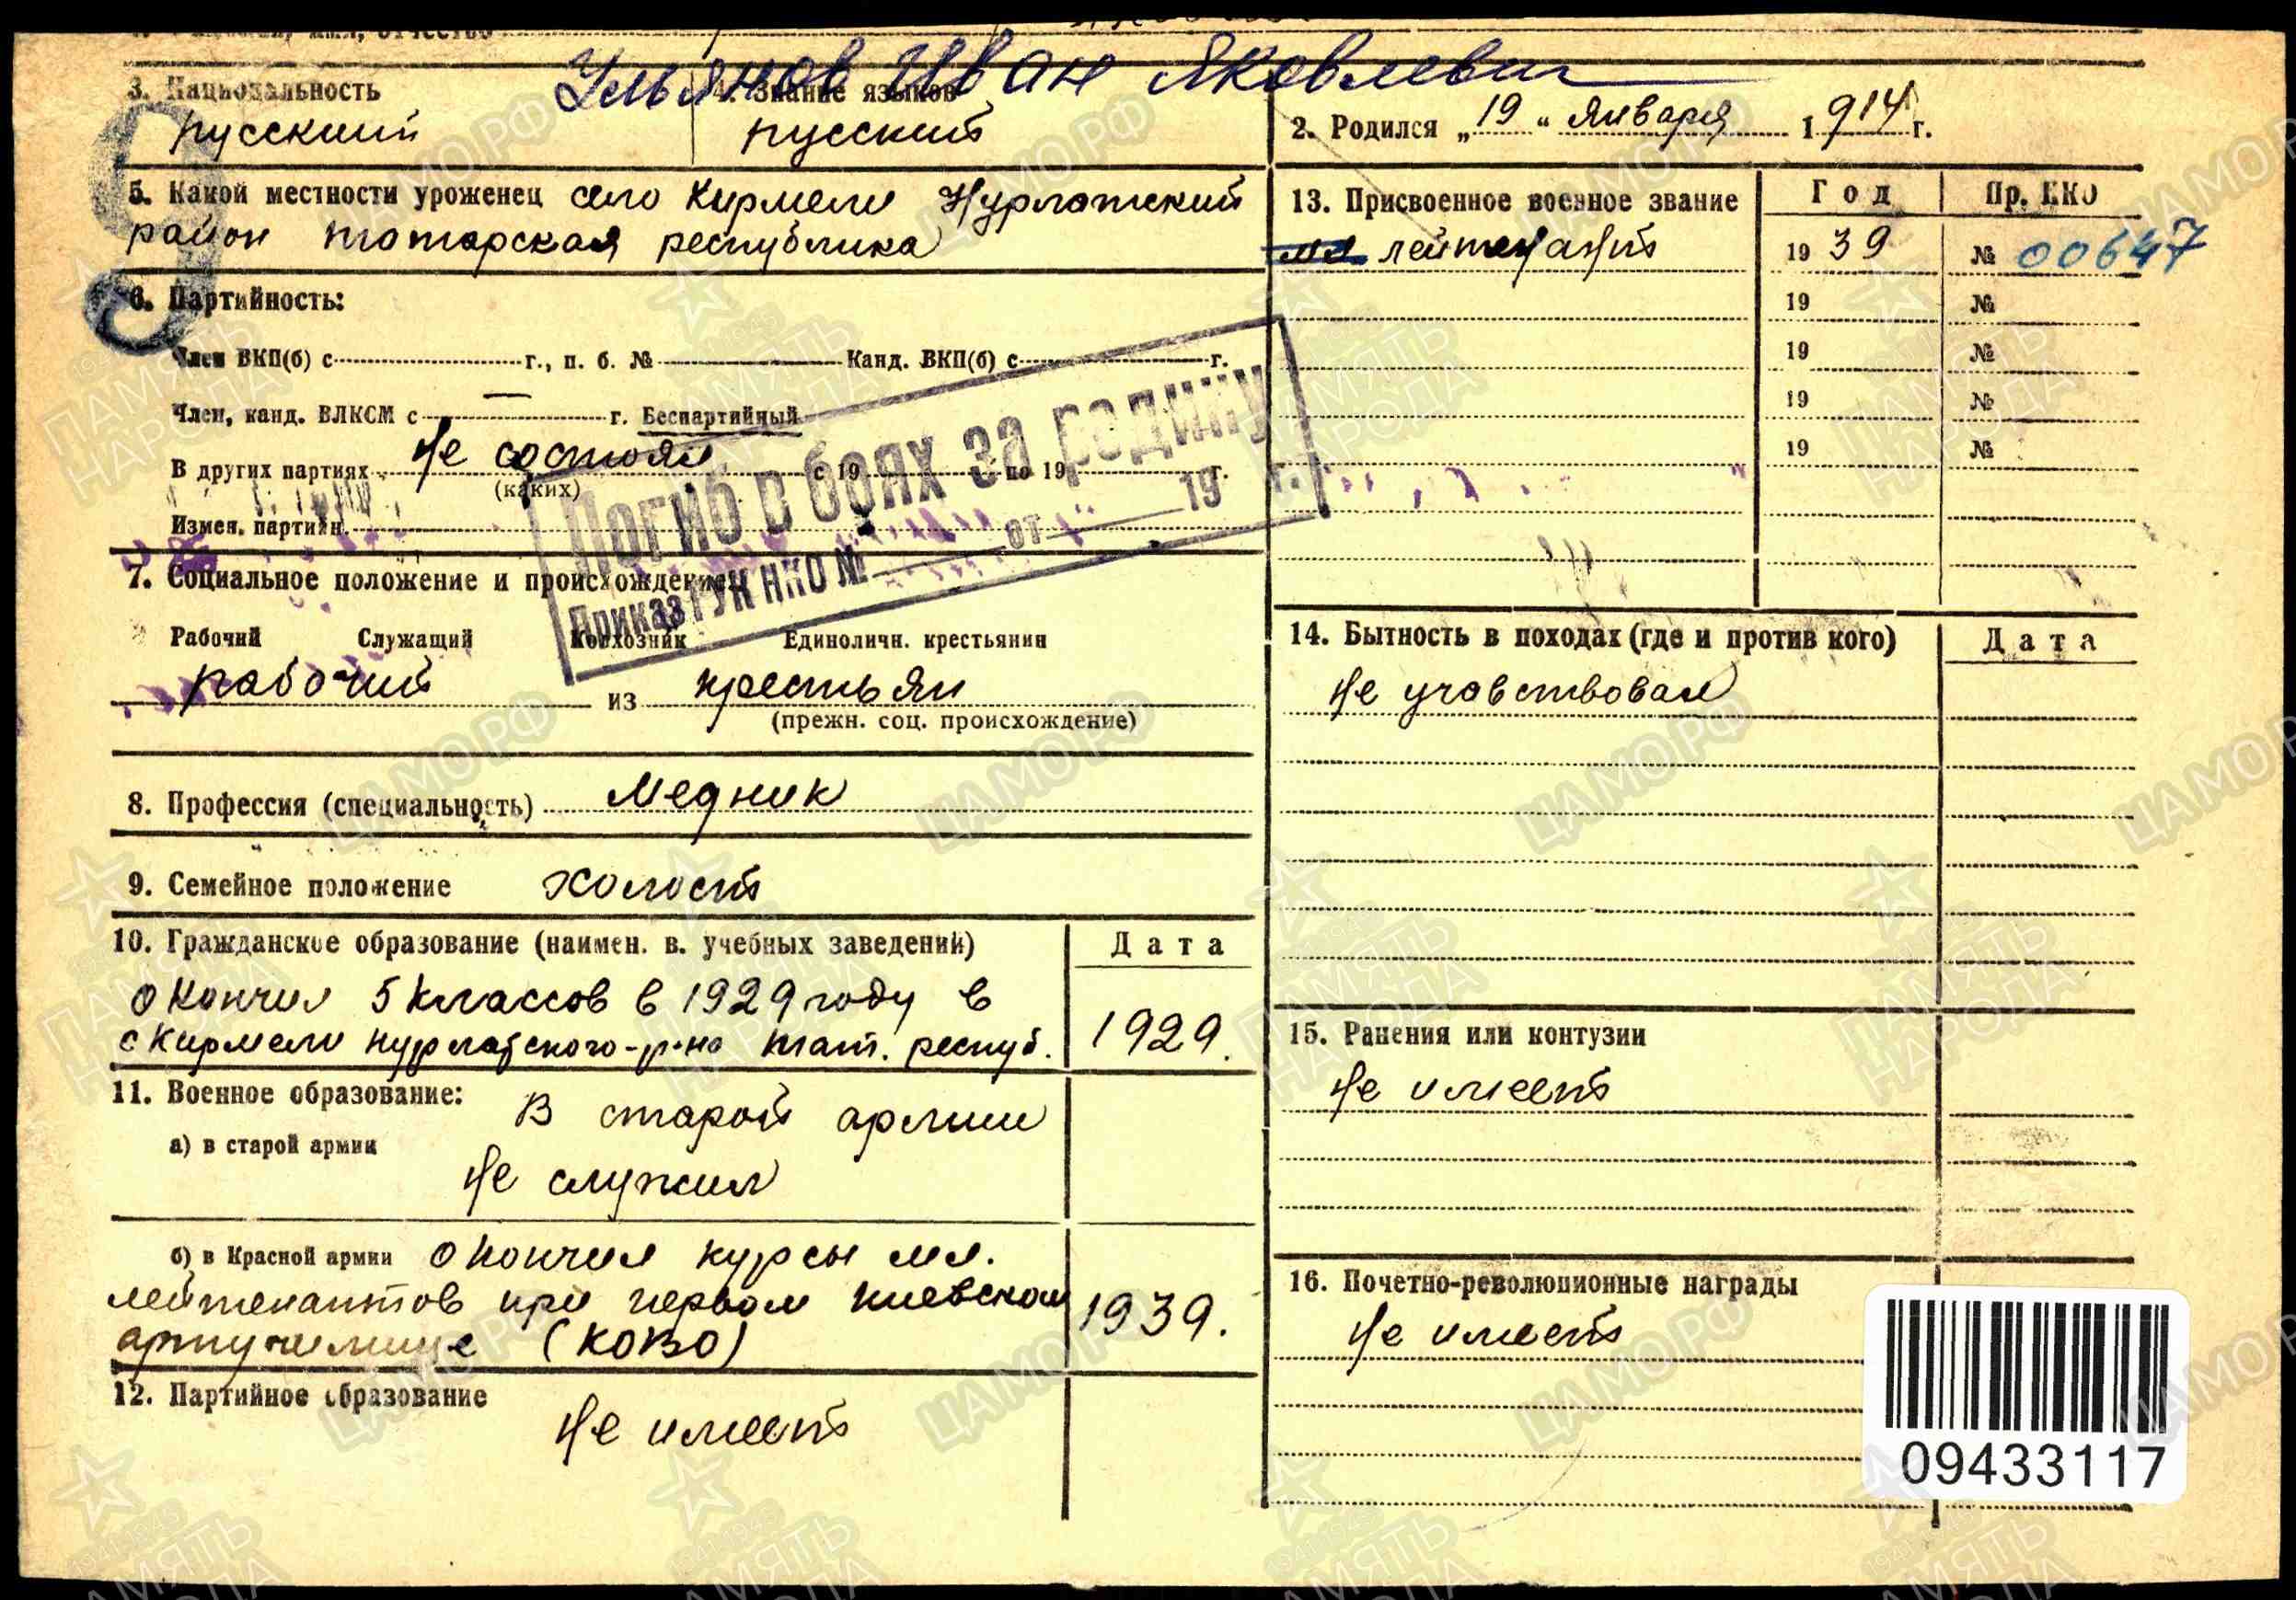 Ульянов Иван Яковлевич
3. Национальность
4. Знание языков
русский
русский
2. Родился „19“ января 1914 г.
5. Какой местности уроженец село Кирмели Нурлатский
район татарская республика
13. Присвоенное военное звание
Год
Пр. НКО
мл лейтенант
19 39
№ 00647
19 №
19 №
19 №
19 №
6. Партийность:
Член ВКП(б) с г., п. б. № Канд. ВКП(б) с г.
Член, канд. ВЛКСМ с — г. Беспартийный
В других партиях не состоял с 19 по 19 г.
(каких)
Измен. партийн.
Погиб в боях за родину
Приказ ГУК НКО № от 19 г.
7. Социальное положение и происхождение:
Рабочий Служащий Колхозник Единоличн. крестьянин
рабочий из крестьян
(прежн. соц. происхождение)
8. Профессия (специальность) медник
9. Семейное положение холост
10. Гражданское образование (наимен. в. учебных заведений)
Дата
окончил 5 классов в 1929 году в
с Кирмели Нурлатского р-на тат. респуб.
1929.
11. Военное образование:
а) в старой армии
В старой армии
не служил
б) в Красной армии окончил курсы мл.
лейтенантов при первом киевском
артучилище (КОВО)
1939.
12. Партийное образование
не имеет
14. Бытность в походах (где и против кого)
Дата
не учавствовал
15. Ранения или контузии
не имеет
16. Почетно-революционные награды
не имеет
09433117
ЦАМО РФ
ПАМЯТЬ НАРОДА
1941-1945